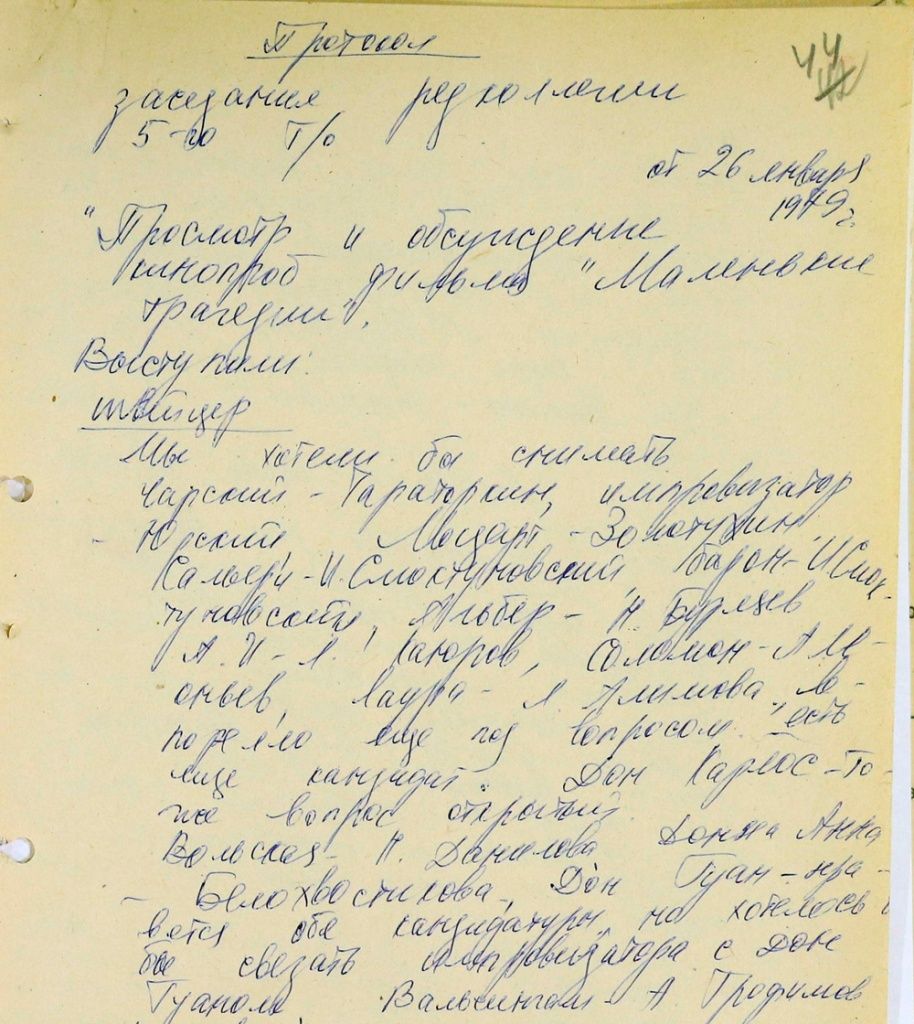 Протокол
44
заседания редколлегии
5-го т/о
от 26 января
1979 г.
"Просмотр и обсуждение
кинопроб фильма "Маленькие
трагедии".
Выступили:
Швейцер
Мы хотели бы снимать
Чарский - Тараторкин, импровизатор
- Юрский Моцарт - Золотухин
Сальери - И. Смоктуновский, Барон - И Смок-
туновский, Альбер - Н. Бурляев
Каюров, Соломон - А Ле-
оньев, Лаура - Алимова, Ле-
порелло еще под вопросом есть
еще кандидат. Дон Карлос - то-
же вопрос открытый.
Вольская - Н. Данилова Донна Анна
- Белохвостикова, Дон Гуан - нра-
вятся обе кандидатуры, но хотелось
бы связать импровизатора с Дон
Гуаном. Вальсингам - А. Трофимов